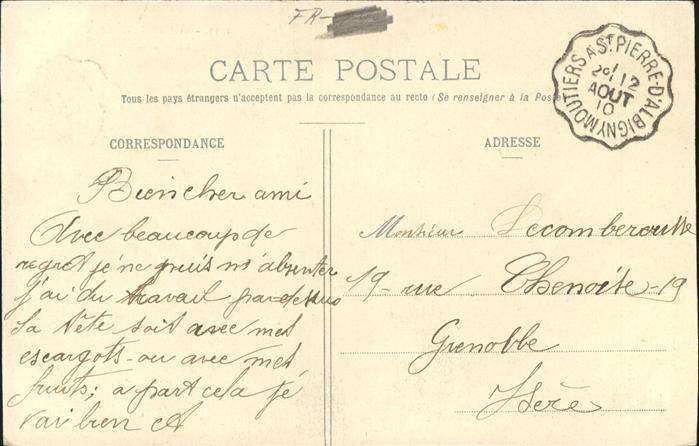 FR-
CARTE POSTALE
Tous les pays étrangers n'acceptent pas la correspondance au recto (Se renseigner à la Poste
MOUTIERS A ST PIERRE-D'ALBIGNY
2º/12
AOUT
10
CORRESPONDANCE
Bien cher ami
Avec beaucoup de
regret je ne puis m'absenter
j'ai du travail par dessus
la tête soit avec mes
escargots - ou avec mes
fruits; a part cela je
vai bien et
ADRESSE
Monsieur Lecomberousse
19 - rue Chenoise - 19
Grenoble
Isère